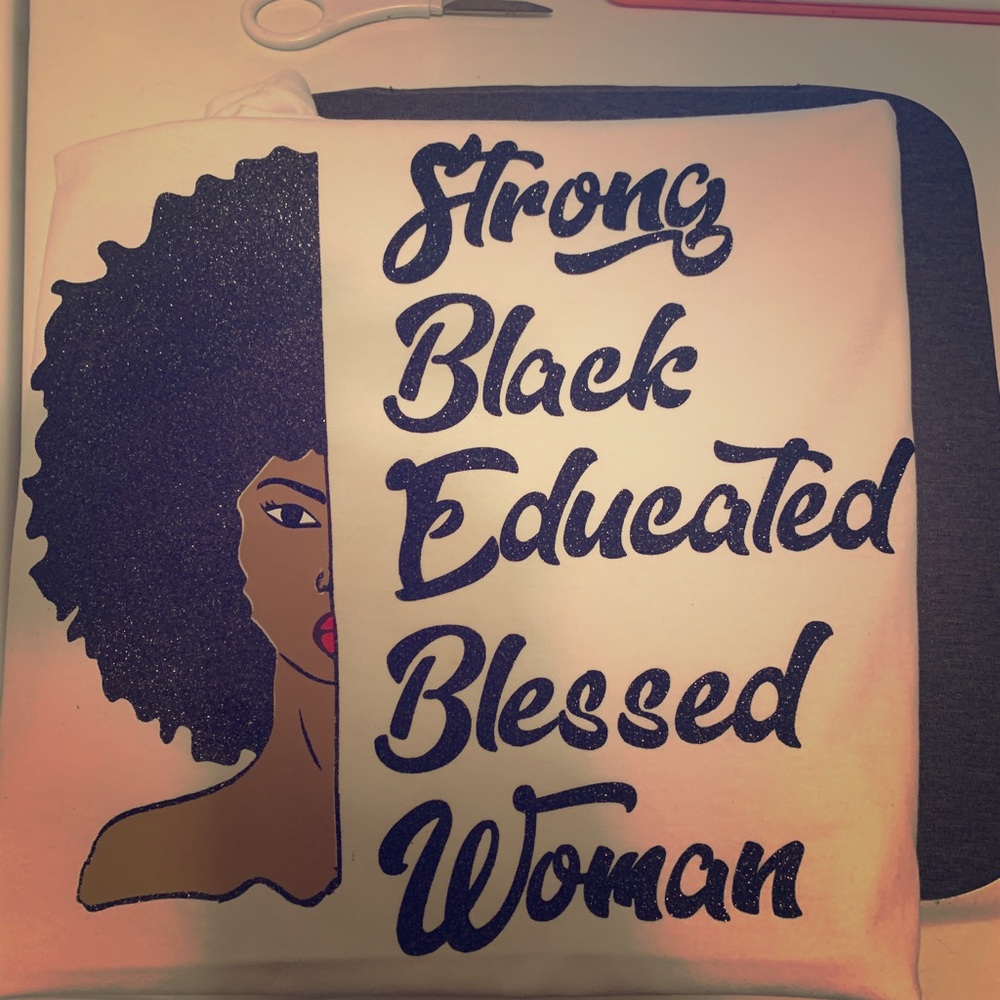 Strong
Black
Educated
Blessed
Woman